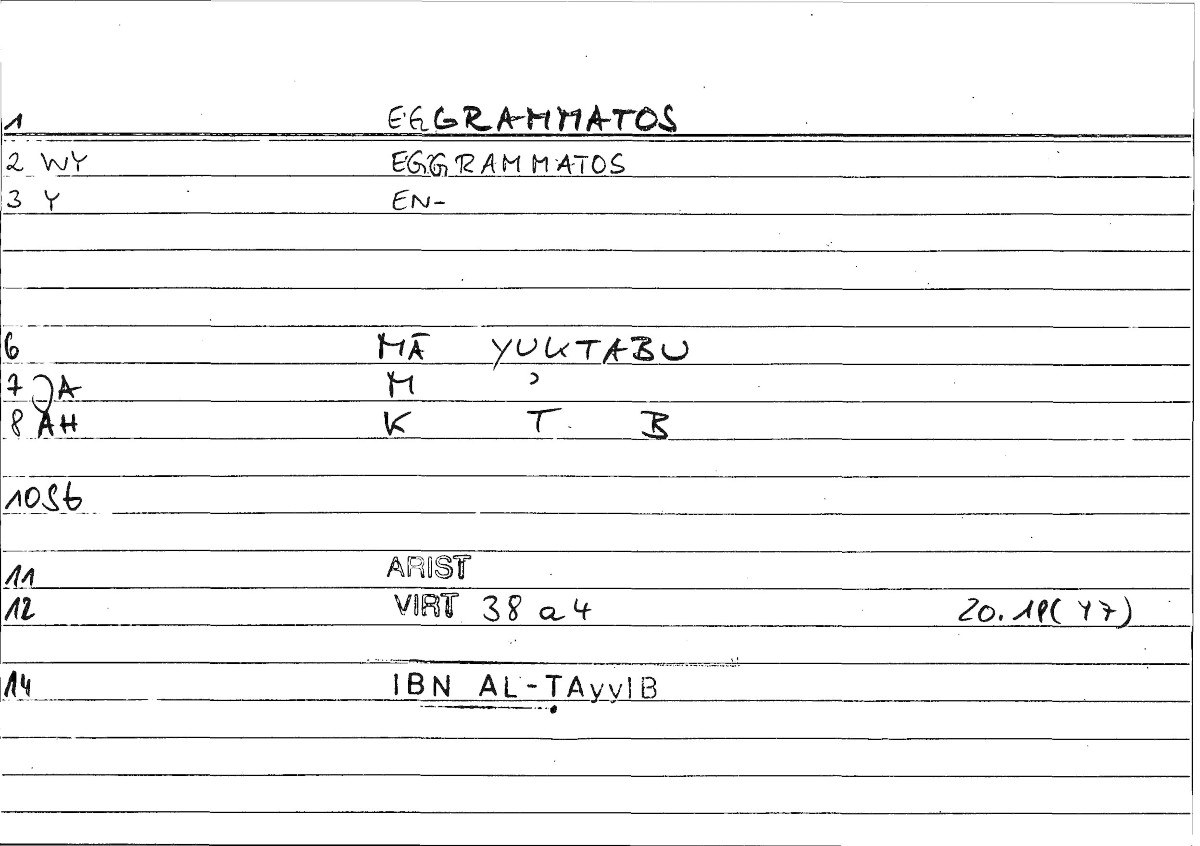 1 EGGRAMMATOS
2 WY EGGRAMMATOS
3 Y EN-
6 MĀ YUKTABU
7 A M ʾ
8 AH K T B
10 St
11 ARIST
12 VIRT 38 a 4 20. ( Y 7)
14 IBN AL-ṬAyyIB